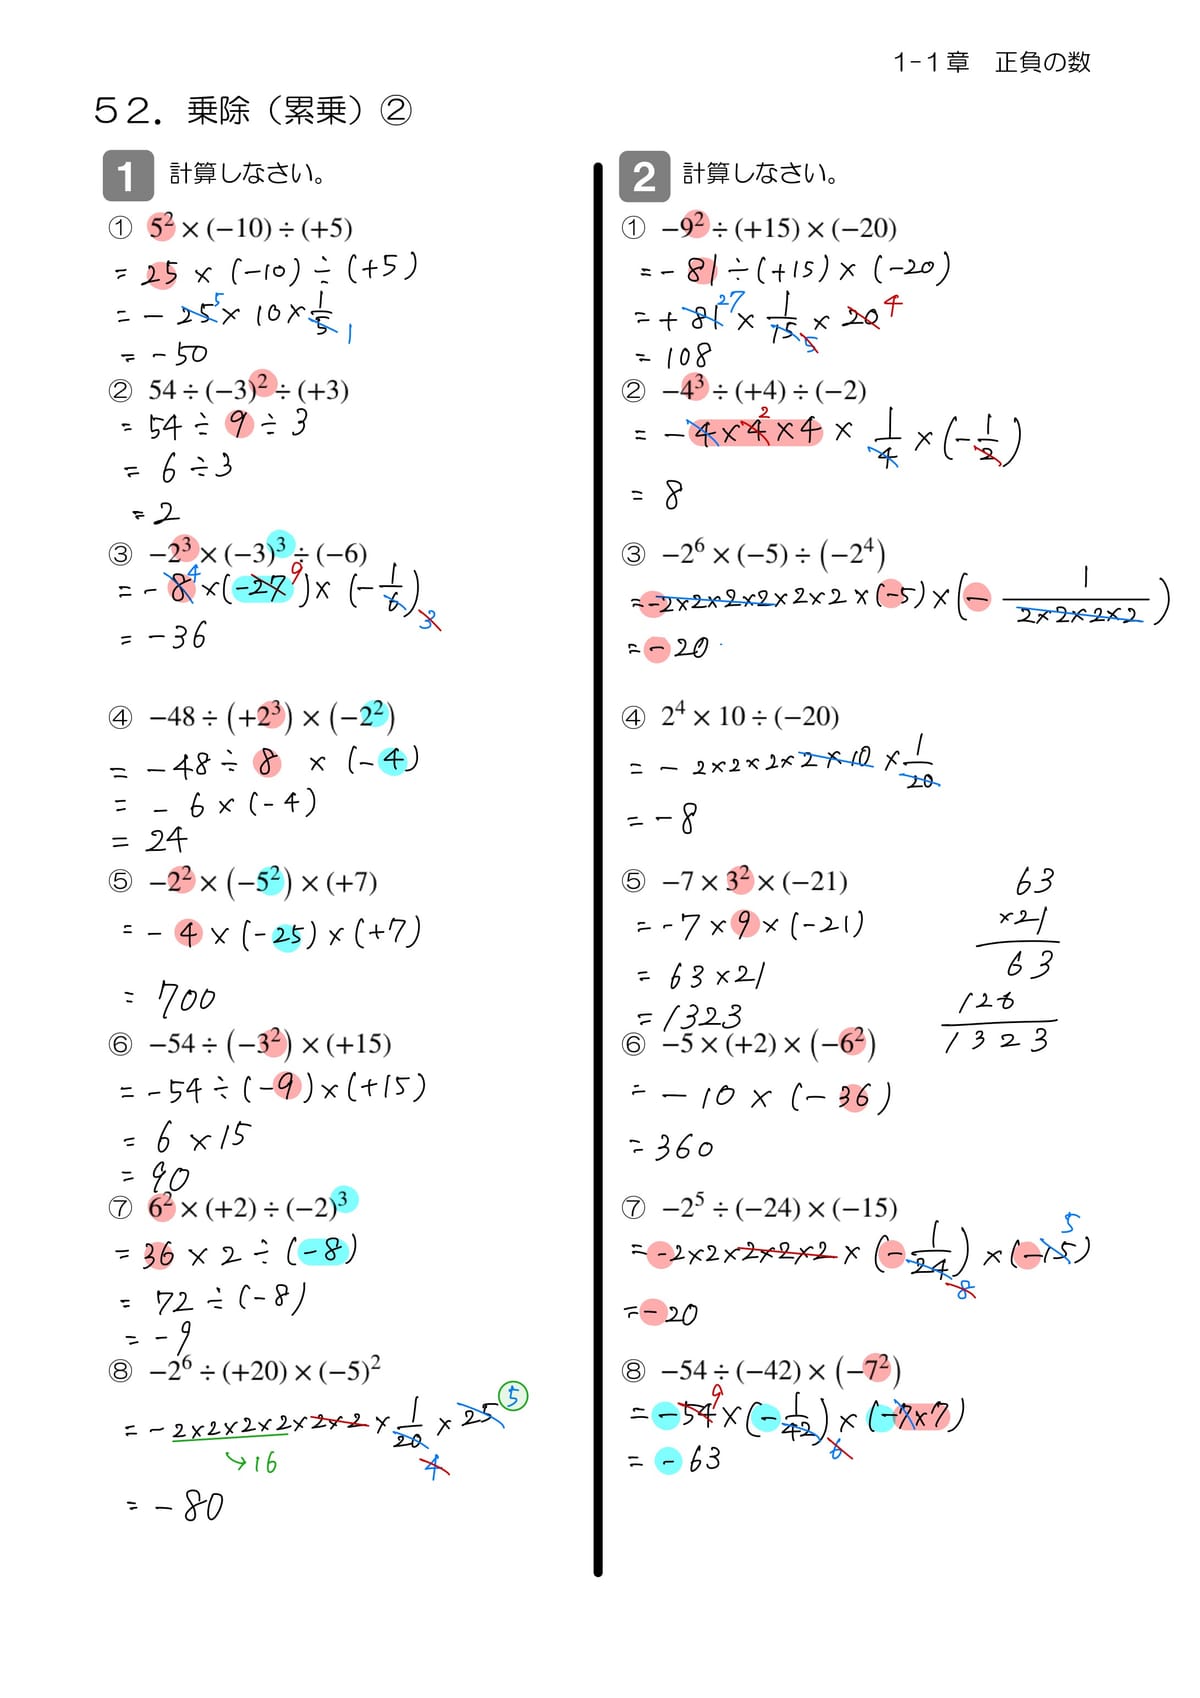 1-1章　正負の数
５２．乗除（累乗）②
1 計算しなさい。
① 5² × (−10) ÷ (+5)
= 25 × (−10) ÷ (+5)
= − 25 5 × 10 × 1/5 1
= −50
② 54 ÷ (−3)² ÷ (+3)
= 54 ÷ 9 ÷ 3
= 6 ÷ 3
= 2
③ −2³ × (−3)³ ÷ (−6)
= − 8 4 × (−27 9) × (− 1/6 3)
= −36
④ −48 ÷ (+2³) × (−2²)
= −48 ÷ 8 × (−4)
= − 6 × (−4)
= 24
⑤ −2² × (−5²) × (+7)
= − 4 × (−25) × (+7)
= 700
⑥ −54 ÷ (−3²) × (+15)
= −54 ÷ (−9) × (+15)
= 6 × 15
= 90
⑦ 6² × (+2) ÷ (−2)³
= 36 × 2 ÷ (−8)
= 72 ÷ (−8)
= −9
⑧ −2⁶ ÷ (+20) × (−5)²
= − 2×2×2×2×2×2 × 1/20 4 × 25 5
→16
= −80
2 計算しなさい。
① −9² ÷ (+15) × (−20)
= − 81 ÷ (+15) × (−20)
= + 81 27 × 1/15 5 × 20 4
= 108
② −4³ ÷ (+4) ÷ (−2)
= − 4 × 4 2 × 4 × 1/4 × (− 1/2)
= 8
③ −2⁶ × (−5) ÷ (−2⁴)
= −2×2×2×2×2×2 × (−5) × (− 1/2×2×2×2)
= −20
④ 2⁴ × 10 ÷ (−20)
= − 2×2×2×2×10 × 1/20
= −8
⑤ −7 × 3² × (−21)
= −7 × 9 × (−21)
= 63 × 21
= 1323
63
×21
63
126
1323
⑥ −5 × (+2) × (−6²)
= −10 × (−36)
= 360
⑦ −2⁵ ÷ (−24) × (−15)
= −2×2×2×2×2 × (− 1/24 8) × (−15 5)
= −20
⑧ −54 ÷ (−42) × (−7²)
= −54 9 × (− 1/42 6) × (−7×7)
= − 63